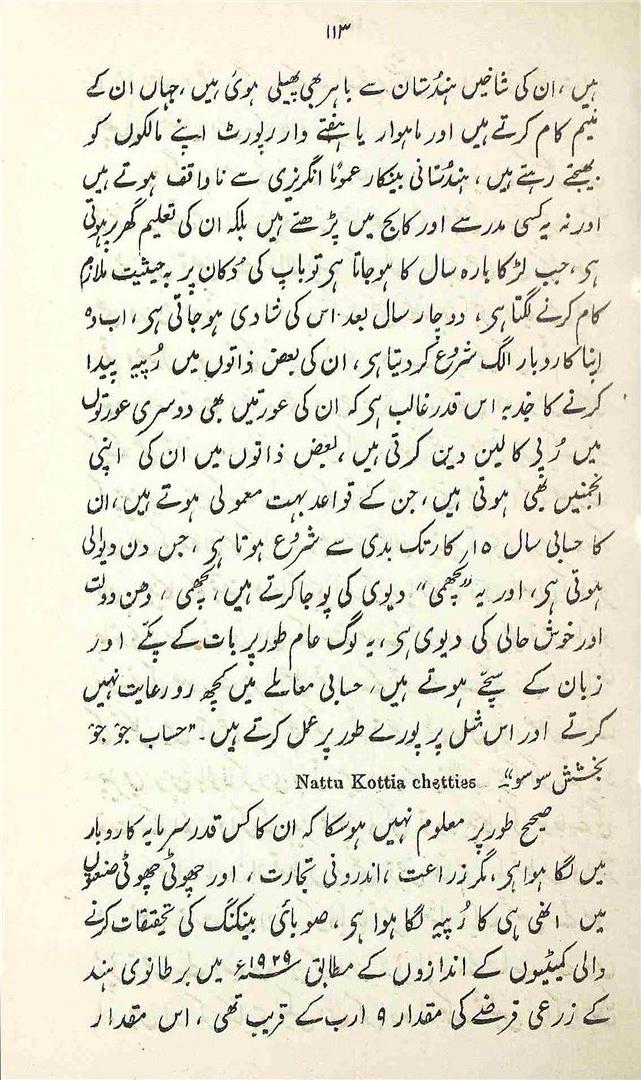 ۱۱۳
ہیں، ان کی شاخیں ہندُستان سے باہر بھی پھیلی ہوئ ہیں، جہاں ان کے
منیم کام کرتے ہیں اور ماہوار یا ہفتے وار رپورٹ اپنے مالکوں کو
بھیجتے رہتے ہیں، ہندُستانی بینکار عموماً انگریزی سے ناواقف ہوتے ہیں
اور نہ یہ کسی مدرسے اور کالج میں پڑھتے ہیں بلکہ ان کی تعلیم گھر پر ہوتی
ہی، جب لڑکا بارہ سال کا ہوجاتا ہی تو باپ کی دُکان پر بہ حیثیت ملازم
کام کرنے لگتا ہی، دو چار سال بعد اس کی شادی ہوجاتی ہی، اب وہ
اپنا کاروبار الگ شروع کردیتا ہی، ان کی بعض ذاتوں میں رُپیہ پیدا
کرنے کا جذبہ اس قدر غالب ہی کہ ان کی عورتیں بھی دوسری عورتوں
میں رُپی کا لین دین کرتی ہیں، بعض ذاتوں میں ان کی اپنی
انجمنیں بھی ہوتی ہیں، جن کے قواعد بہت معمولی ہوتے ہیں، ان
کا حسابی سال ۱۵ کارتک بدی سے شروع ہوتا ہی، جس دن دیوالی
ہوتی ہی، اور یہ "لچھمی" دیوی کی پوجا کرتے ہیں، لچھمی، دھن دولت
اور خوش حالی کی دیوی ہی، یہ لوگ عام طور پر بات کے پکّے اور
زبان کے سچّے ہوتے ہیں، حسابی معاملے میں کچھ رو رعایت نہیں
کرتے اور اس مثل پر پورے طور پر عمل کرتے ہیں۔ "حساب جَو جَو
بخشش سو سو"۔ Nattu Kottia chetties
صحیح طور پر معلوم نہیں ہوسکا کہ ان کا کس قدر سرمایہ کاروبار
میں لگا ہوا ہی، مگر زراعت، اندرونی تجارت، اور چھوٹی چھوٹی صنعتوں
میں انھی ہی کا رُپیہ لگا ہوا ہی، صوبائی بینکنگ کی تحقیقات کرنے
والی کمیٹیوں کے اندازوں کے مطابق ۱۹۲۹ء میں برطانوی ہند
کے زرعی قرضے کی مقدار ۹ ارب کے قریب تھی، اس مقدار